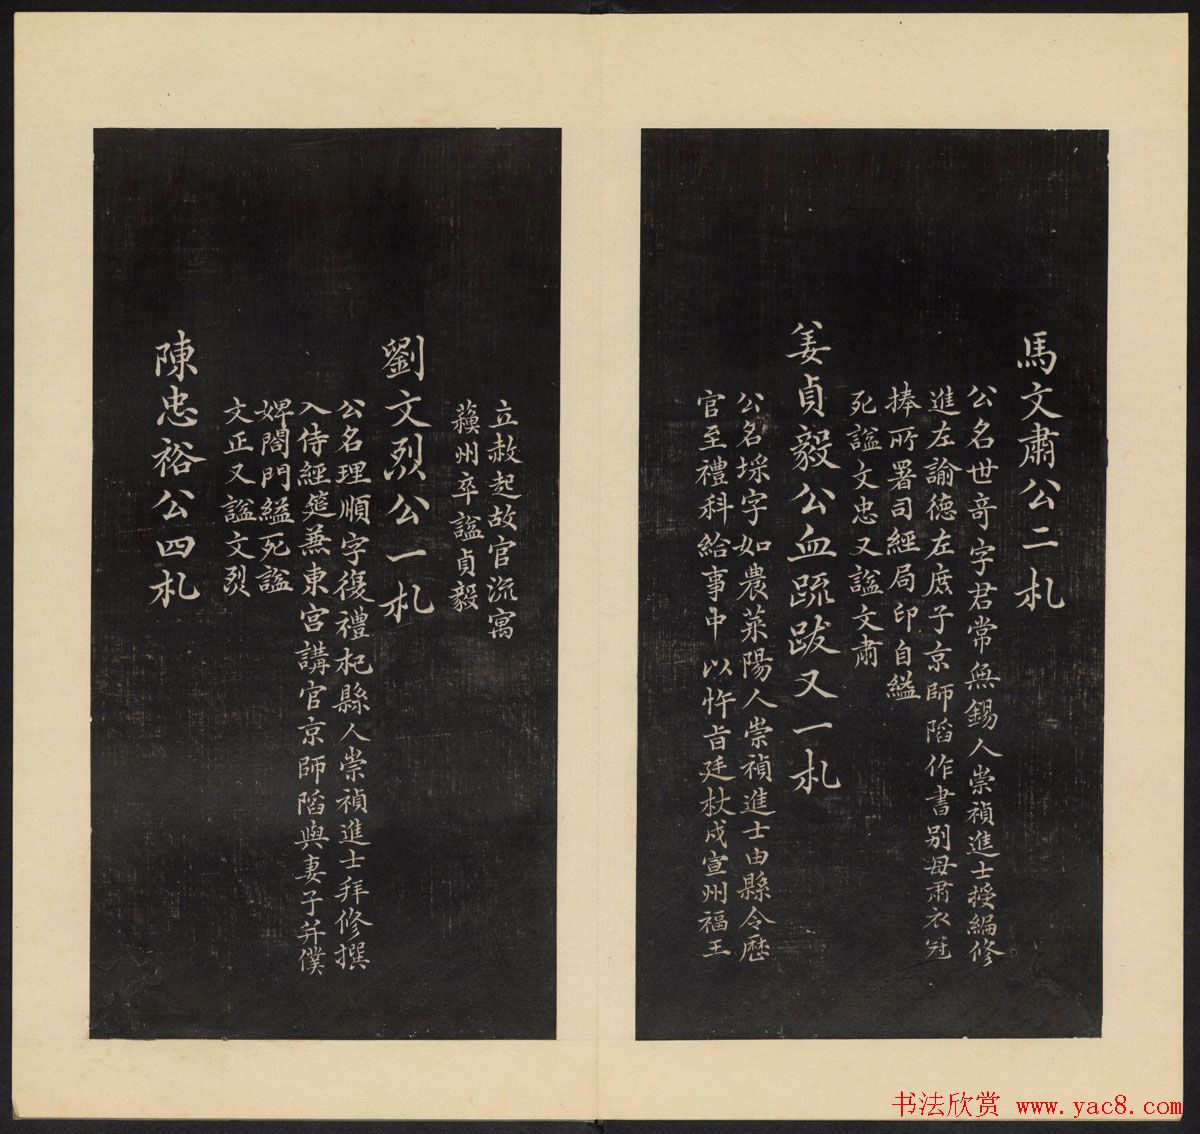 馬文肅公二札
公名世竒字君常無錫人崇禎進士授編修
進左諭德左庶子京師陷作書别母肅衣冠
捧所署司經局印自縊
死謚文忠又謚文肅
姜貞毅公血疏跋又一札
公名埰字如農萊陽人崇禎進士由縣令歷
官至禮科給事中以忤旨廷杖戍宣州福王
立赦起故官流寓
蘓州卒謚貞毅
劉文烈公一札
公名理順字復禮杞縣人崇禎進士拜修撰
入侍經筵兼東宮講官京師陷與妻子并僕
婢闔門縊死謚
文正又謚文烈
陳忠裕公四札
书法欣赏 www.yac8.com